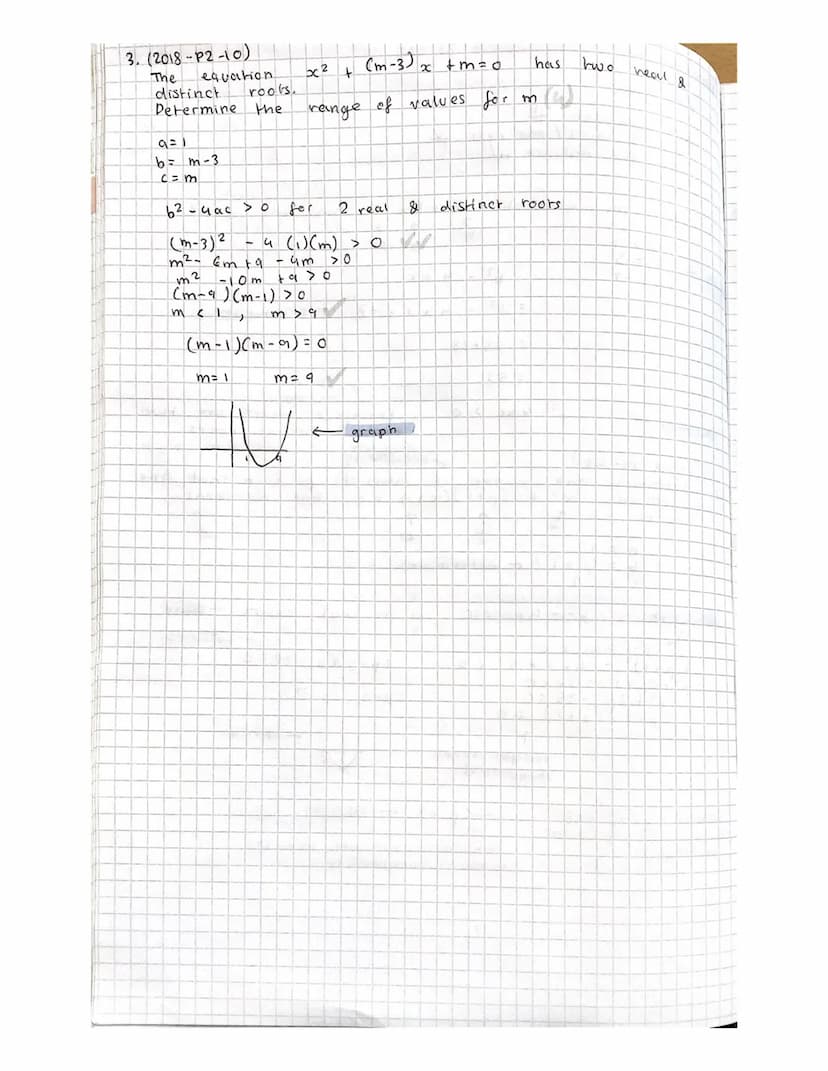 3. (2018-P2-10)
The equation x² + (m-3)x + m = 0 has two real &
distinct roots.
Determine the range of values for m (4)
a = 1
b = m-3
c = m
b² - 4ac > 0 for 2 real & distinct roots
(m-3)² - 4 (1)(m) > 0 ✓✓
m² - 6m + 9 - 4m > 0
m² - 10m + 9 > 0
(m-9)(m-1) > 0
m < 1, m > 9 ✓
(m-1)(m-9) = 0
m = 1 m = 9 ✓
1 9 ← graph